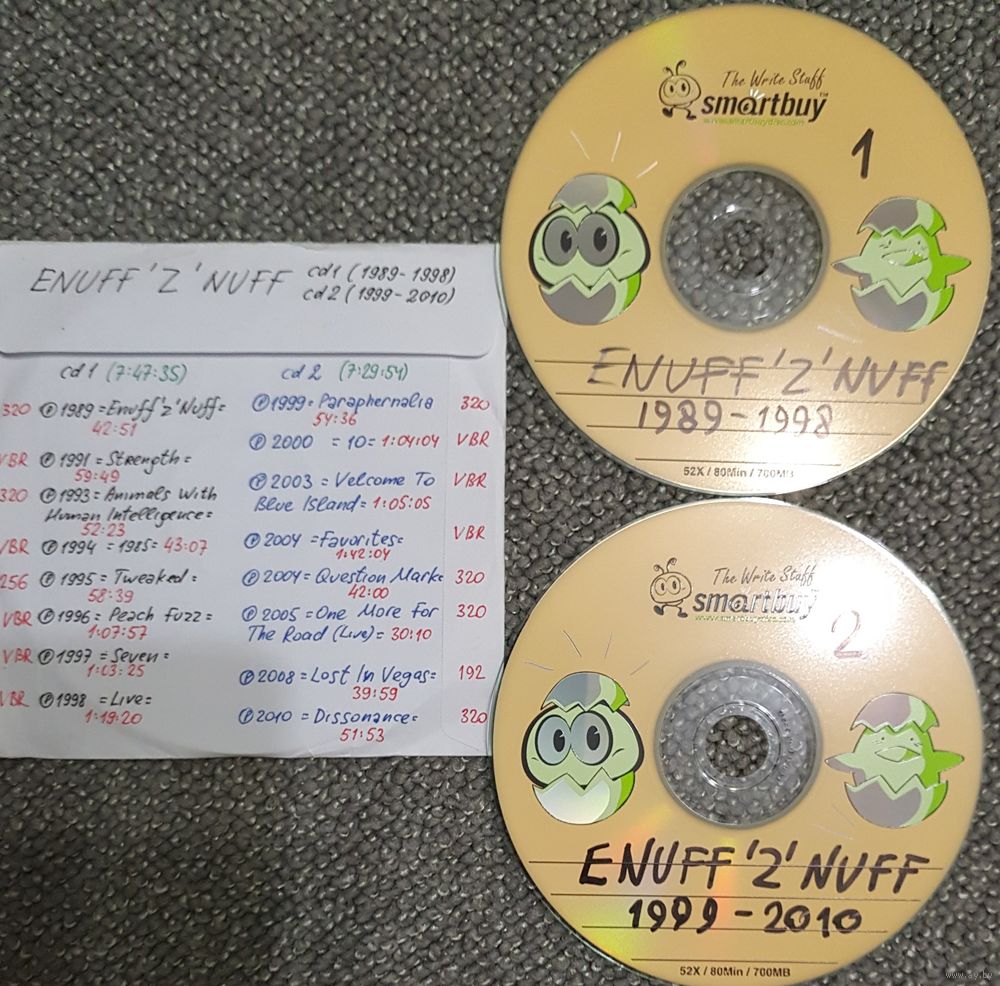 ENUFF 'Z' NUFF cd1 (1989-1998)
cd2 (1999-2010)
cd1 (7:47:35)
320 Ⓟ 1989 =Enuff'z'Nuff=
42:51
VBR Ⓟ 1991 =Strength=
59:49
320 Ⓟ 1993 = Animals With
Human Intelligence=
52:23
VBR Ⓟ 1994 =1985= 43:07
256 Ⓟ 1995 = Tweaked=
58:39
VBR Ⓟ 1996 = Peach Fuzz=
1:07:57
VBR Ⓟ 1997 = Seven=
1:03:25
VBR Ⓟ 1998 =Live=
1:19:20
cd2 (7:29:54)
Ⓟ 1999= Paraphernalia 320
54:36
Ⓟ 2000 =10= 1:04:04 VBR
Ⓟ 2003 = Velcome To VBR
Blue Island= 1:05:05
Ⓟ 2004 =Favorites= VBR
1:42:04
Ⓟ 2004= Question Mark= 320
42:00
Ⓟ 2005 =One More For 320
The Road (Live)= 30:10
Ⓟ 2008 =Lost In Vegas= 192
39:59
Ⓟ 2010 = Dissonance= 320
51:53
The Write Stuff
smartbuy™
www.smartbuydisc.com
1
ENUFF'Z'NUFF
1989-1998
52X / 80Min / 700MB
The Write Stuff
smartbuy
www.smartbuydisc.com
2
ENUFF'Z'NUFF
1999-2010
52X / 80Min / 700MB
www.ay.by